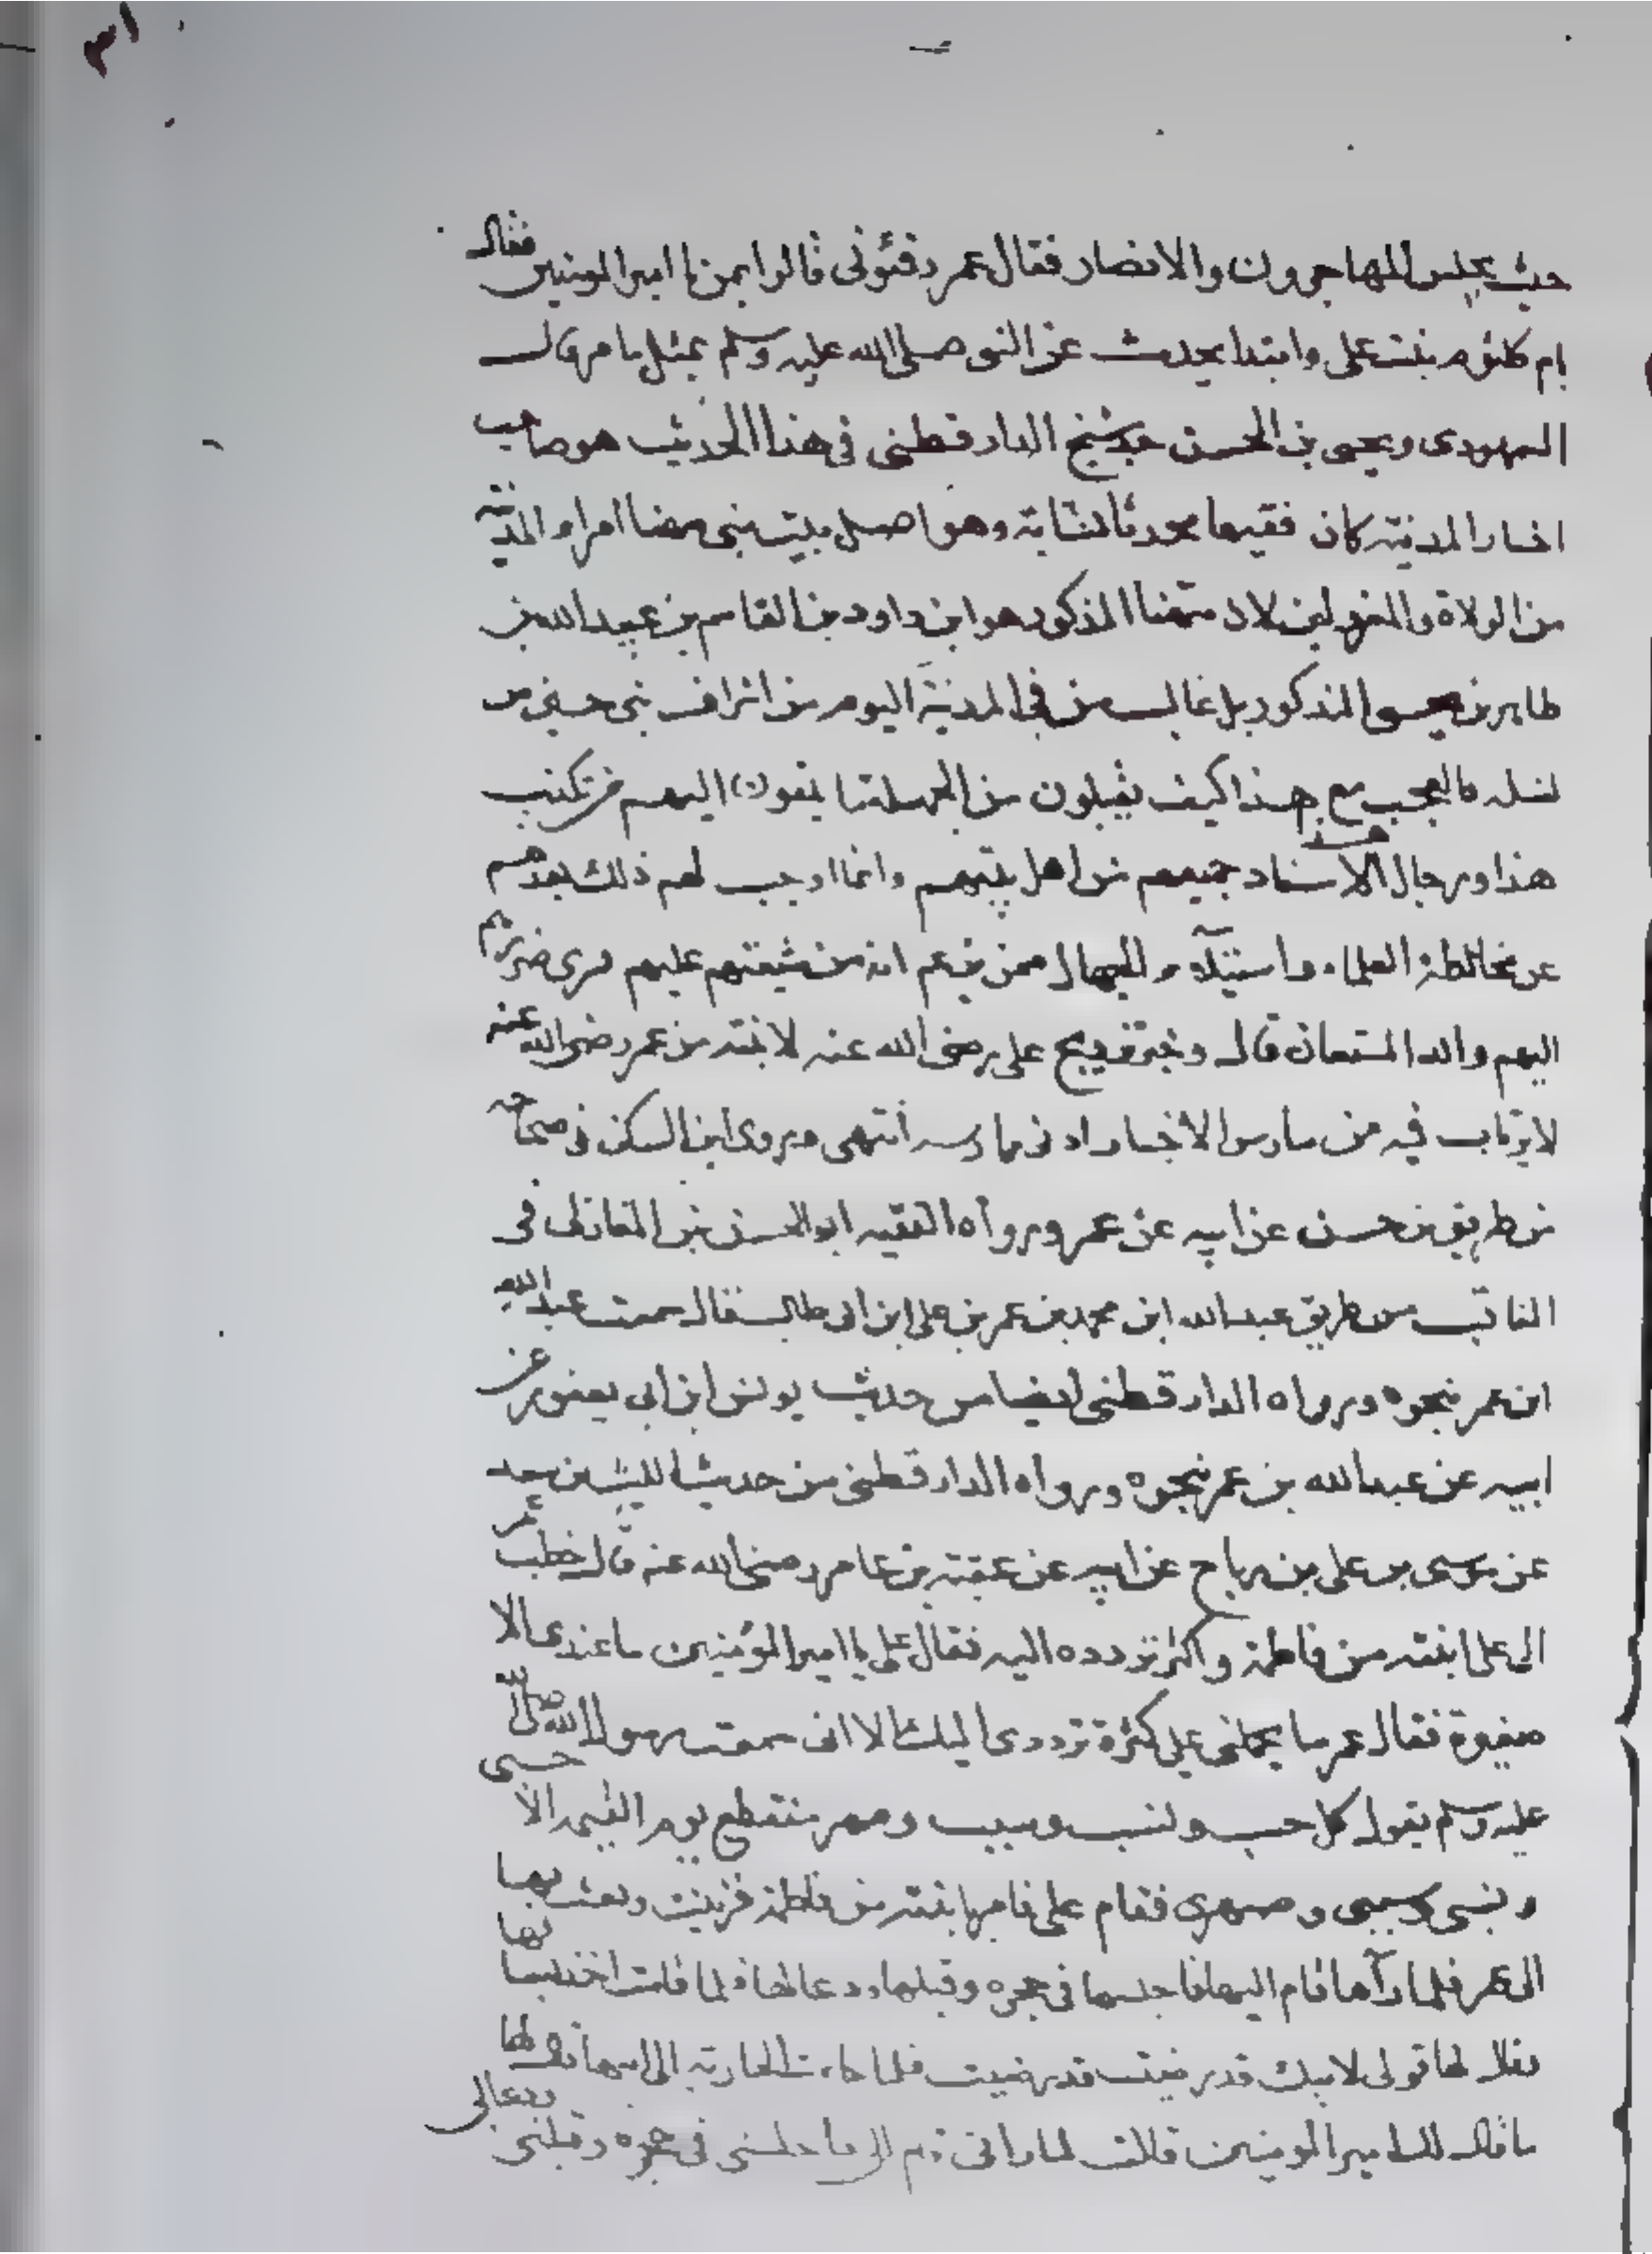 ٣١
حيث يجلس المهاجرون والانصار فقال عمر رفئوني قالوا بمن يا امير المومنين فقال
بام كلثوم بنت على وابتدا يحدث عن النبى صلى الله عليه وسلم بمثل ما مر قال
السمهودى ويحيى بن الحسن جد شيخ الدارقطنى فى هذا الحديث هو صاحب
اخبار المدينة كان فقيها محدثا نسابة وهو اصل بيت بنى مهنا امراء المدينة
من الولاة والمعزولين لان مهنا المذكور هو ابن داود بن القاسم بن عبيد الله بن
طاهر بن يحيى المذكور بل غالب من فى المدينة اليوم من اشراف بنى حسين من
نسله فالعجب مع هذا كيف يقبلون من الجهلة ما يلقون اليهم من تكذيب
هذا ورجال الاسناد جميعهم من اهل بيتهم وانما اوجب لهم ذلك بعدهم
عن مخالطة العلماء واستيلاء الجهال ممن يزعم انه من شيعتهم عليهم فسرى ضررهم
اليهم والله المستعان قال وخبر تزويج على رضى الله عنه لابنته من عمر رضى الله عنه
لا يرتاب فيه من مارس الاخبار ادنى ممارسه انتهى وروى ابن السكن فى صحاحه
من طريق بن حسن عن ابيه عن عمر ورواه الفقيه ابو الحسن بن المغازلى فى
المناقب من طريق عبد الله ابن محمد بن عمر بن على ابن ابى طالب قال سمعت عبد الله
ابن عمر نحوه ورواه الدارقطنى ايضا من حديث يونس ابن ابى يعفور عن
ابيه عن عبد الله بن عمر نحوه ورواه الدارقطنى من حديث الليث بن سعد
عن موسى بن على بن رباح عن ابيه عن عقبة بن عامر رضى الله عنه قال خطب عمر
الى على ابنته من فاطمة واكثر تردده اليه فقال على يا امير المؤمنين ما عندى الا
صغيرة فقال عمر ما يحملنى على كثرة ترددى اليك الا انى سمعت رسول الله صلى الله
عليه وسلم يقول كل حسب ونسب وسبب وصهر منقطع يوم القيمه الا حسبى
ونسبى وسببى وصهرى فقام على فامر بابنته من فاطمة فزينت وبعث بها
الى عمر فلما رآها قام اليها فاجلسها فى حجره وقبلها ودعا لها فلما قامت اخذ بساقها
فقال لها قولى لابيك قد رضيت قد رضيت فلما جاءت الجارية الى ابيها قال لها
ما قال لك امير المومنين قالت لما رانى قام الى فاجلسنى فى حجره وقبلنى ودعالى